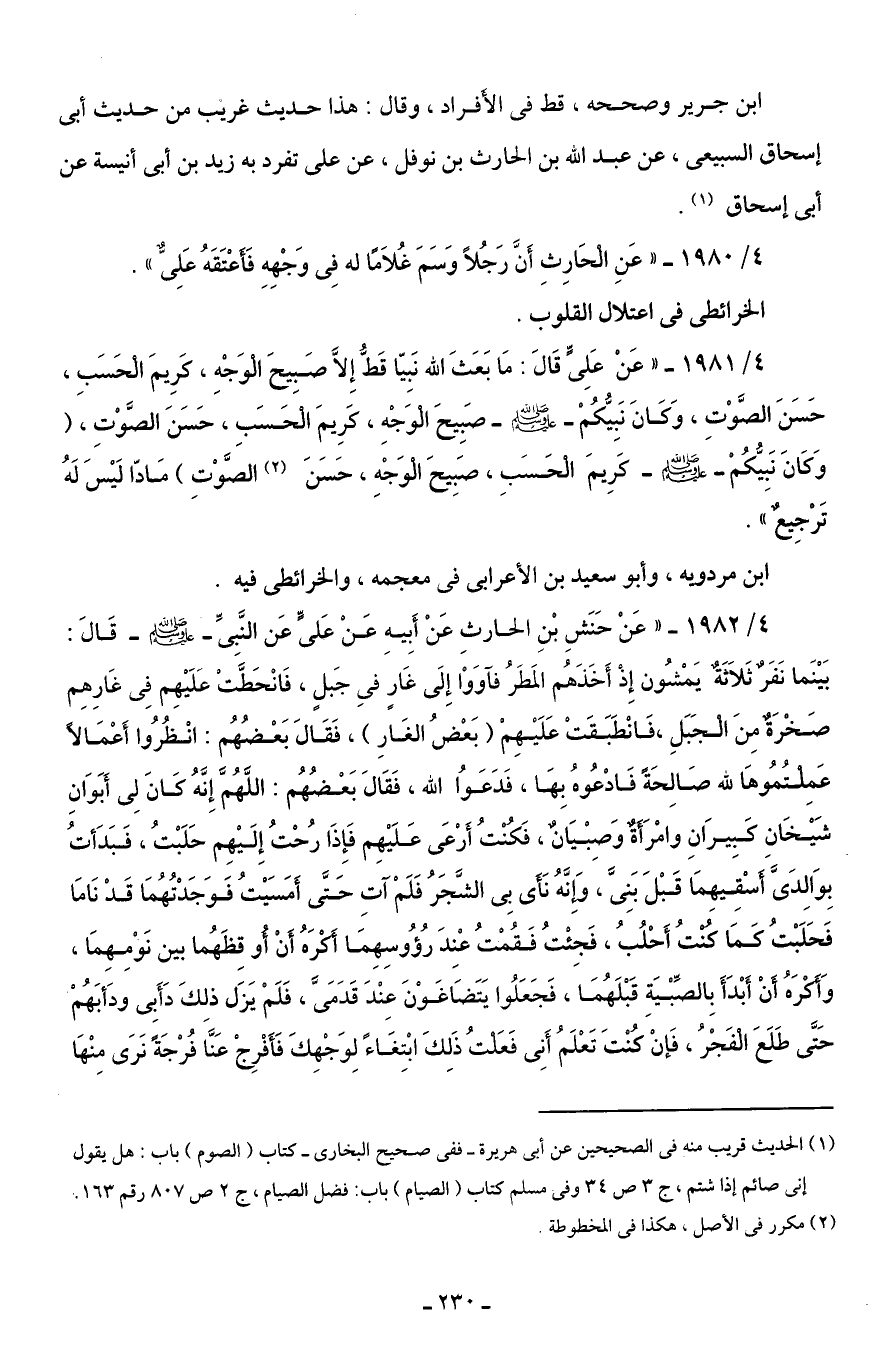 ابن جرير وصححه ، قط فى الأفراد ، وقال : هذا حديث غريب من حديث أبى
إسحاق السبيعى ، عن عبد الله بن الحارث بن نوفل ، عن على تفرد به زيد بن أبى أنيسة عن
أبى إسحاق (١) .
٤/ ١٩٨٠ ـ « عَنِ الْحَارِثِ أَنَّ رَجُلاً وَسَمَ غُلاَمًا له فِى وَجْهِهِ فَأَعْتَقَهُ عَلِىٌّ » .
الخرائطى فى اعتلال القلوب .
٤/ ١٩٨١ ـ « عَنْ عَلِىٍّ قَالَ : مَا بَعَثَ الله نَبِيّا قَطُّ إِلاَّ صَبِيحَ الْوَجْهِ ، كَرِيمَ الْحَسَبِ ،
حَسَنَ الصَّوْتِ ، وَكَانَ نَبِيُّكُمْ ـ ﷺ ـ صَبِيحَ الْوَجْهِ ، كَرِيمَ الْحَسَبِ ، حَسَنَ الصَّوْتِ ، (
وَكَانَ نَبِيُّكُمْ ـ ﷺ ـ كَرِيمَ الْحَسَبِ ، صَبِيحَ الْوَجْهِ ، حَسَنَ (٢) الصَّوْتِ ) مَادّا لَيْسَ لَهُ
تَرْجِيعٌ » .
ابن مردويه ، وأبو سعيد بن الأعرابى فى معجمه ، والخرائطى فيه .
٤/ ١٩٨٢ ـ « عَنْ حَنَشِ بْنِ الحارِثِ عَنْ أَبِيهِ عَنْ عَلىٍّ عَنِ النَّبِىِّ ـ ﷺ ـ قَالَ :
بَيْنَما نَفَرٌ ثَلاَثَةٌ يَمْشُون إِذْ أَخَذَهُم المَطَرُ فآوَوْا إِلَى غَارٍ فِى جَبَلٍ ، فَانْحَطَّتْ عَلَيْهِم فِى غَارِهِم
صَخْرَةٌ مِنَ الْجَبَلِ ،فَانْطَبَقَتْ عَلَيْهِمْ ( بَعْضُ الغَارِ ) ، فَقَالَ بَعْضُهُم : انْظُرُوا أَعْمَالاً
عَمِلْتُمُوهَا لله صَالِحَةً فَادْعُوهُ بِهَا ، فَدَعَوُا الله ، فَقَالَ بَعْضُهُم : اللَّهُمَّ إِنَّهُ كَانَ لِى أَبَوَانِ
شَيْخَانِ كَبِيرَانِ وامْرَأَةٌ وَصِبْيَانٌ ، فَكُنْتُ أَرْعَى عَلَيْهِم فَإِذَا رُحْتُ إِلَيْهِم حَلَبْتُ ، فَبَدَأتُ
بِوَالِدَىَّ أَسْقِيهِمَا قَبْلَ بَنِىَّ ، وَإِنَّهُ نَأَى بِى الشَّجَرُ فَلَمْ آتِ حَتَّى أَمَسَيْتُ فَوَجَدْتُهُمَا قَدْ نَامَا
فَحَلَبْتُ كَمَا كُنْتُ أَحْلُبُ ، فَجِئْتُ فَقُمْتُ عِنْدَ رُؤُوسِهِمَا أَكْرَهُ أَنْ أُوقِظَهُما بين نَوْمِهِمَا ،
وأَكْرَهُ أَنْ أَبْدَأَ بالصِّبْيَةِ قَبْلَهُمَا ، فَجَعَلُوا يَتَضَاغَوْنَ عِنْدَ قَدَمَىَّ ، فَلَمْ يَزَل ذلِكَ دَأبِى ودَأبَهُمْ
حَتَّى طَلَعَ الْفَجْرُ ، فَإِنْ كُنْتَ تَعْلَمُ أَنِى فَعَلْتُ ذَلِكَ ابْتِغَاءً لِوَجْهِكَ فَأَفْرِجْ عَنَّا فُرْجَةً نَرَى مِنْهَا
(١) الحديث قريب منه فى الصحيحين عن أبى هريرة ـ ففى صحيح البخارى ـ كتاب ( الصوم ) باب : هل يقول
إنى صائم إذا شتم ، ج ٣ ص ٣٤ وفى مسلم كتاب ( الصيام ) باب: فضل الصيام ، ج ٢ ص ٨٠٧ رقم ١٦٣ .
(٢) مكرر فى الأصل ، هكذا فى المخطوطة .
ـ ٢٣٠ ـ